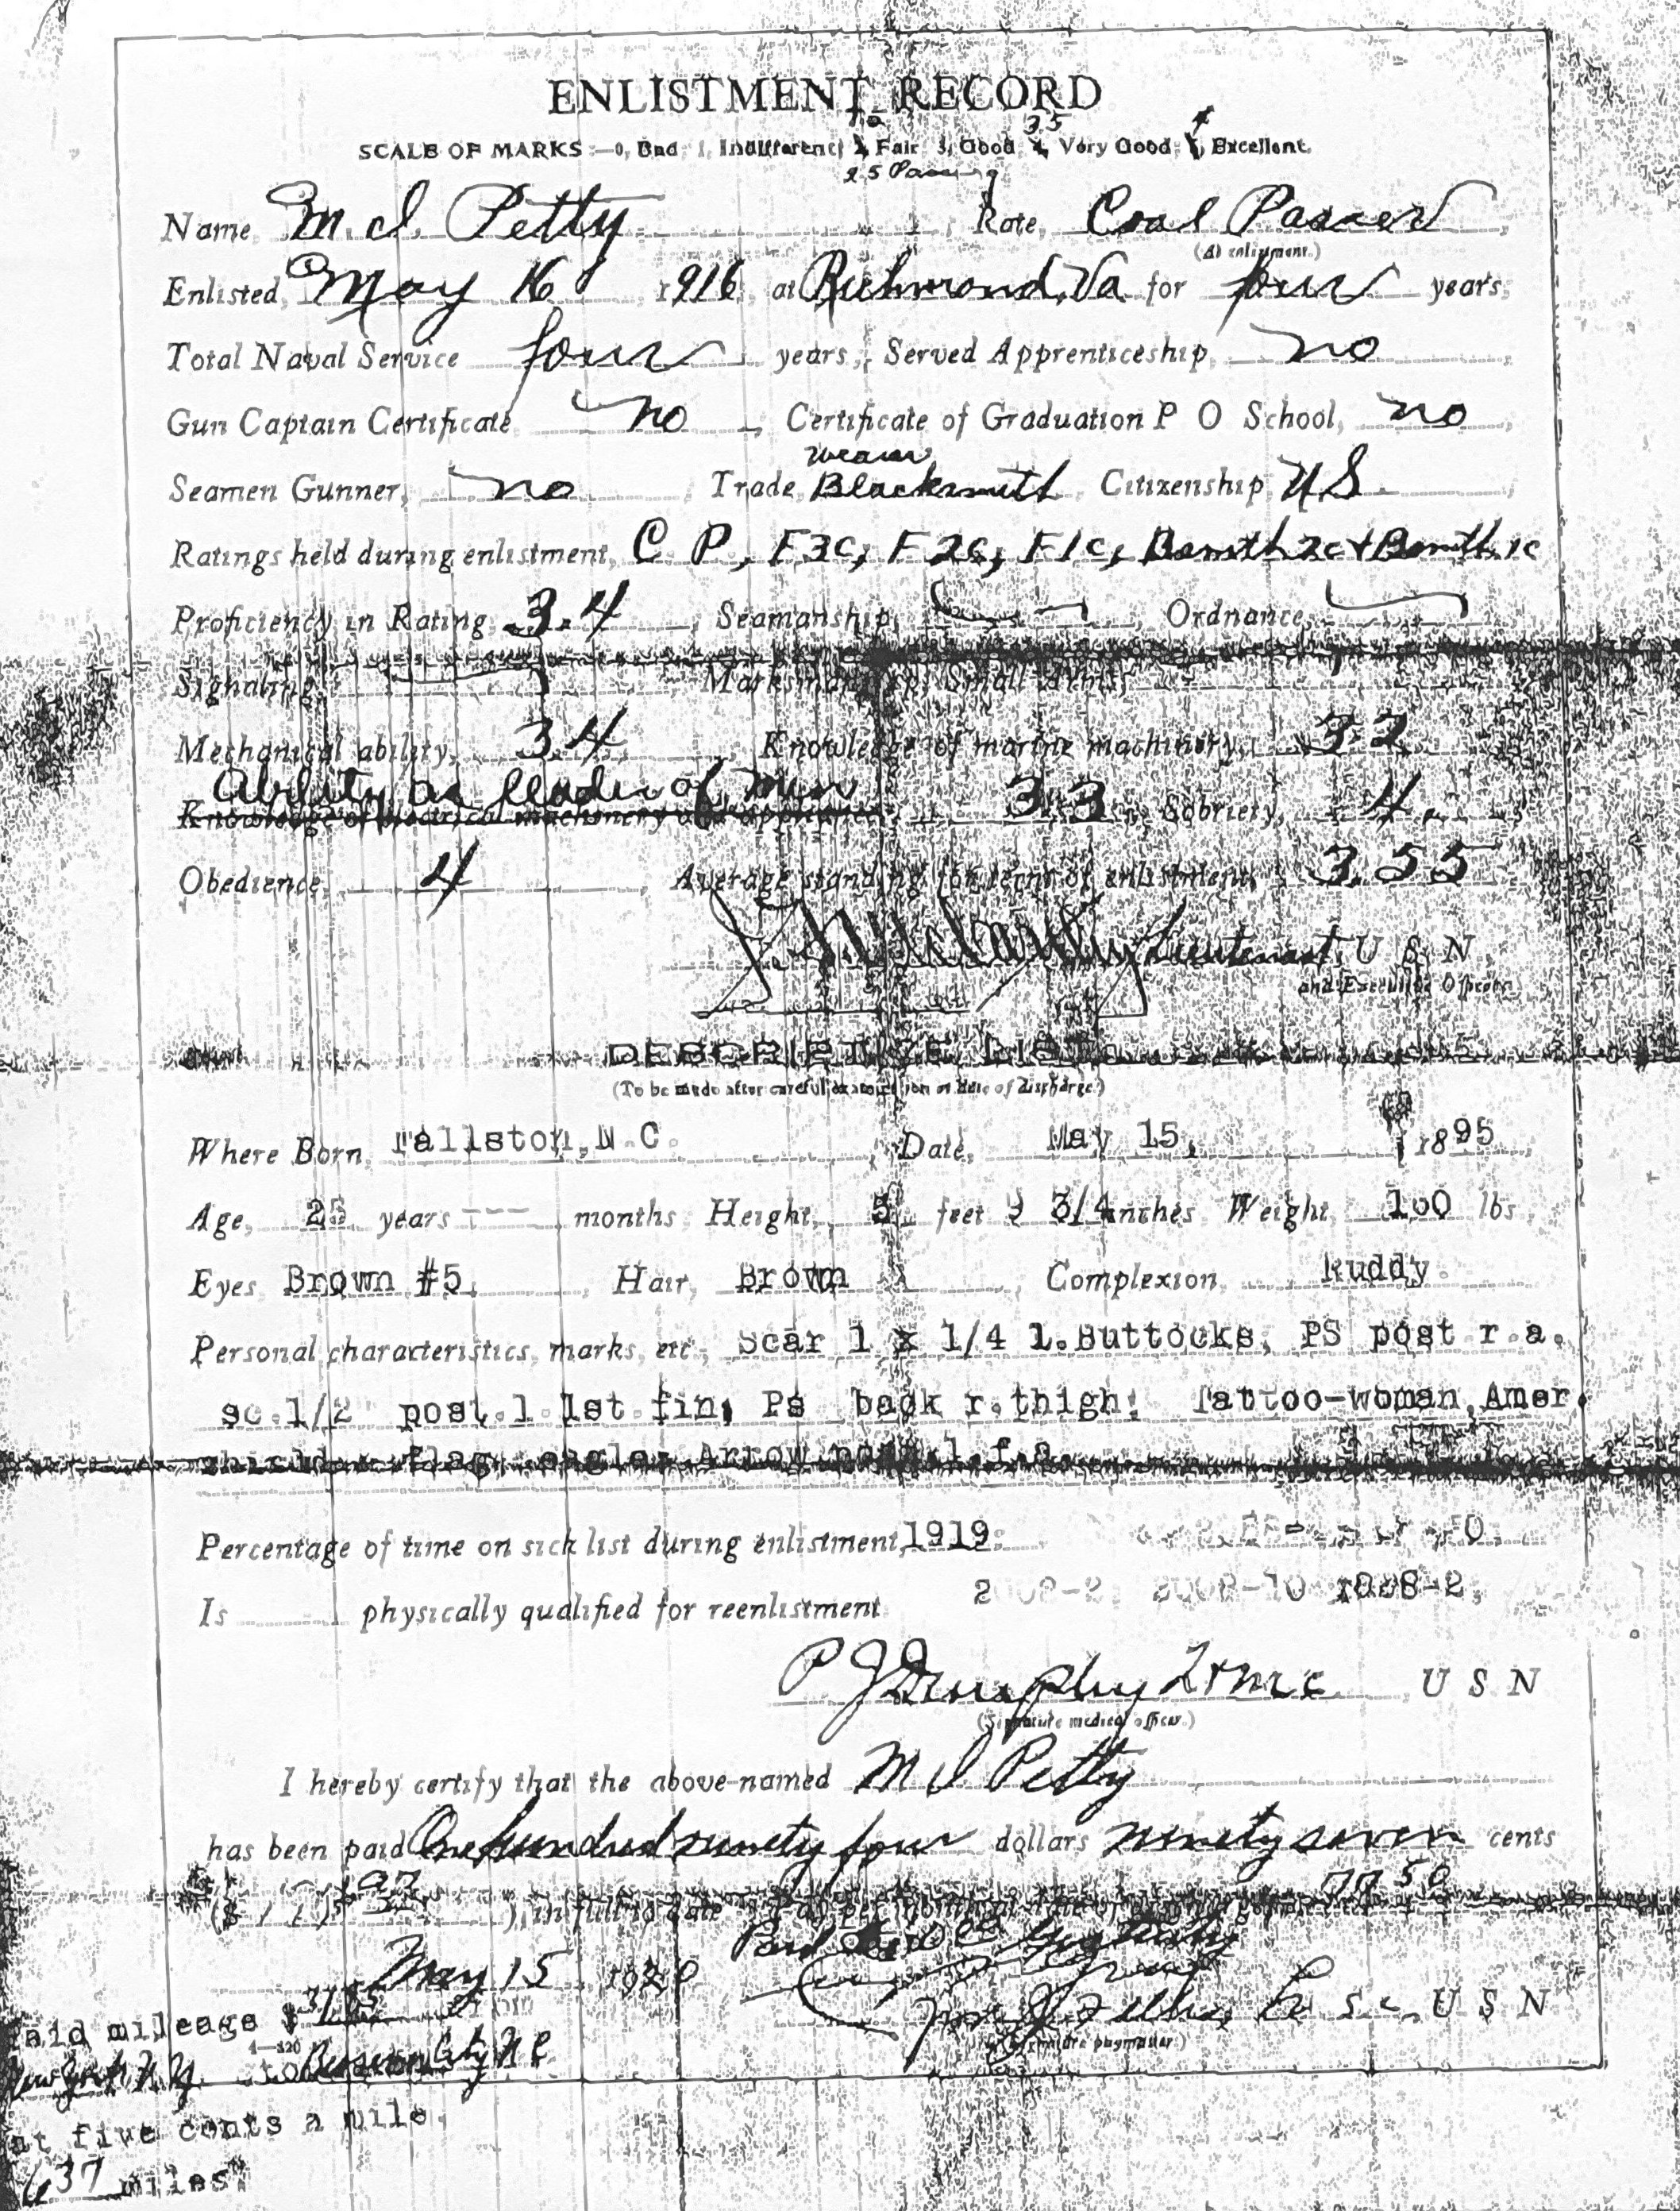 ENLISTMENT RECORD
3.5 4
SCALE OF MARKS:—0, Bad; 1, Indifferent; Fair; 3, Good; 4, Very Good; Excellent.
2.5 Passing
Name, M. I. Petty, Rate, Coal Passer,
(At enlistment.)
Enlisted, May 16, 1916, at Richmond, Va for four years,
Total Naval Service four years, Served Apprenticeship, no,
Gun Captain Certificate no, Certificate of Graduation P O School, no,
Weaver
Seamen Gunner, no, Trade, Blacksmith, Citizenship, U.S.
Ratings held during enlistment, C. P., F3c, F2c, F1c, Bsmith 2c & Bsmith 1c
Proficiency in Rating 3.4, Seamanship, Ordnance,
Signaling, Marksmanship: Small Arms
Mechanical ability, 3.4, Knowledge of marine machinery, 3.2
Ability as leader of men
Knowledge of electrical machinery and appliances, 3.3, Sobriety, 4.,
Obedience, 4, Average standing for term of enlistment, 3.55
Lieutenant, U S N
and Executive Officer
DESCRIPTIVE LIST
(To be made after careful examination on date of discharge.)
Where Born, Fallston, N.C., Date, May 15, 1895,
Age, 25 years --- months Height, 5 feet 3/4 inches Weight, lbs,
Eyes Brown #5, Hair, Brown, Complexion, Ruddy.
Personal characteristics, marks, etc, Scar 1 x 1/4 l. Buttocks, PS post r.a.
sc.1/2 post.l 1st fin, Ps back r.thigh. Tattoo-woman, Amer.
shield, flag, eagle, Arrow post l.f.a.
Percentage of time on sick list during enlistment, 1919:
Is physically qualified for reenlistment 1808-2,
P J Dunphy Lt MC U S N
(Signature medical officer.)
I hereby certify that the above-named M I Petty
has been paid One hundred ninety four dollars ninety seven cents
($ 97), in full to date. Pay per month at date of discharge 77.50
May 15 1920
U S N
(Signature paymaster.)
Paid mileage $ 31.85
4—320
New York N.Y. to City N C
at five cents a mile.
637 miles"